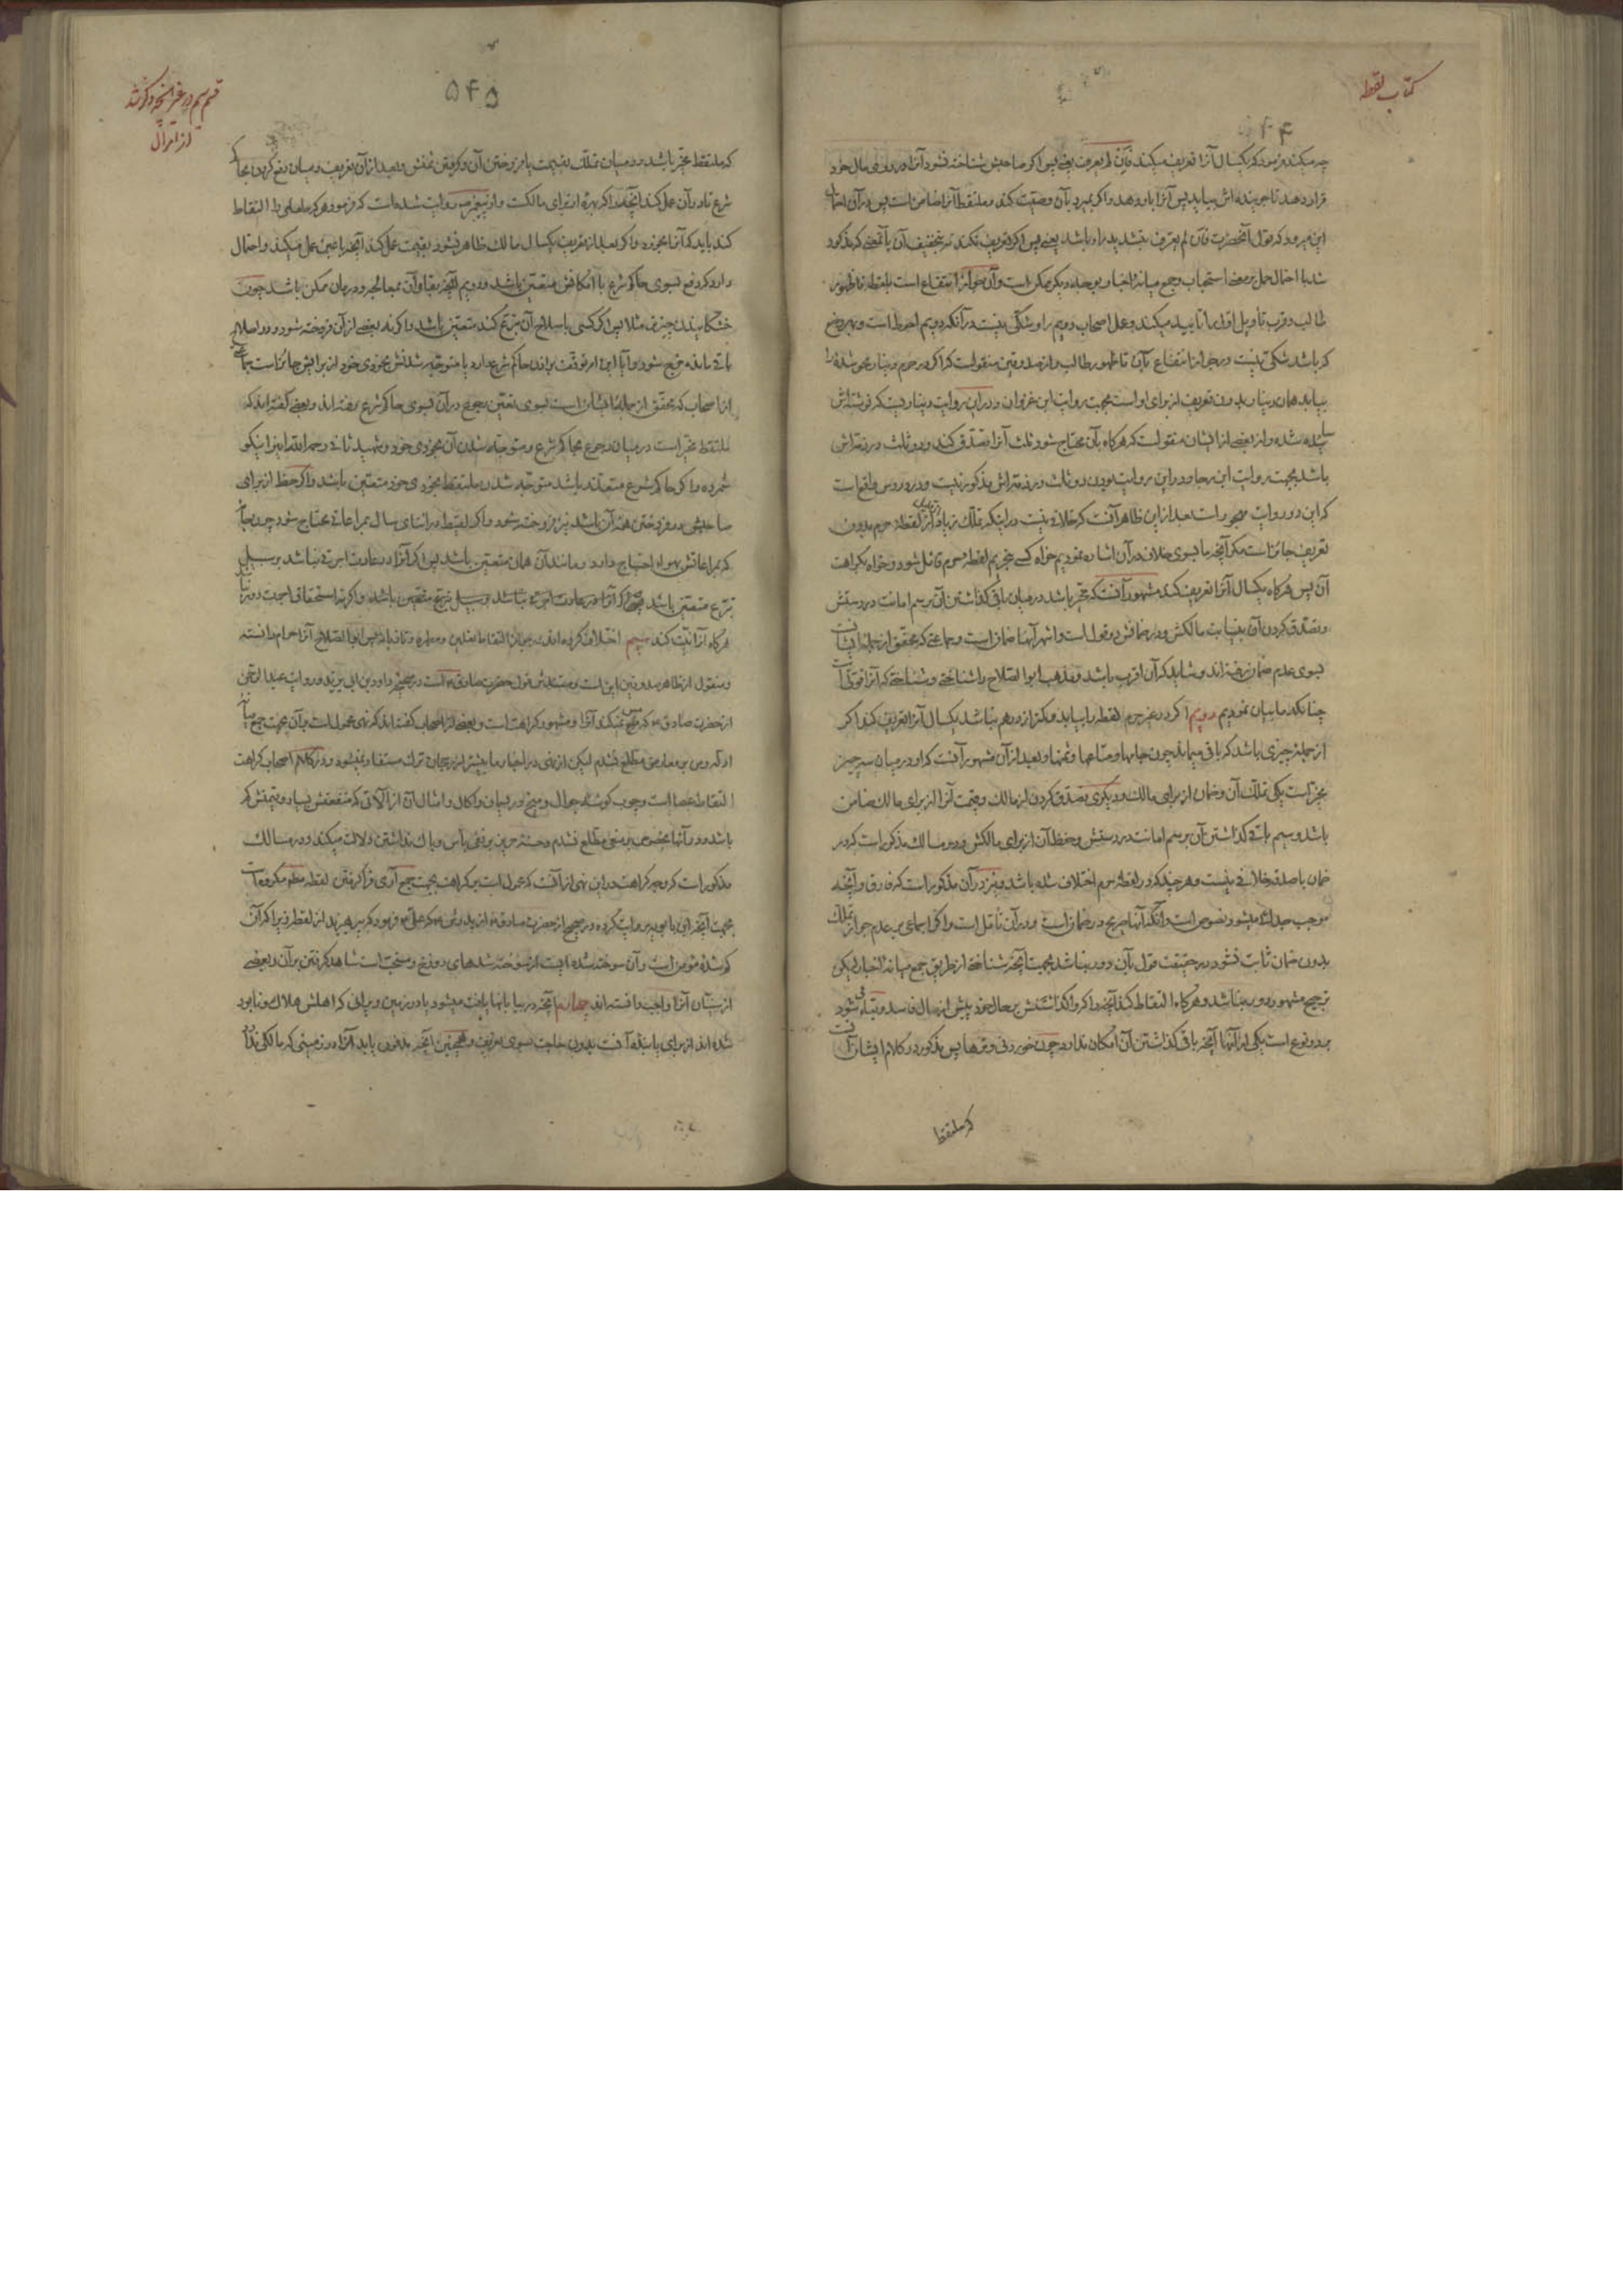 کتاب لقطه
چه میکند فرمود که یکسال آنرا تعریف میکند فان لم یعرف یعنی پس اگر صاحبش شناخته نشود آنرا در روی مال خود
قرار دهد تا جوینده اش بیاید پس آنرا باو دهد و اگر بمیرد بآن وصیت کند و ملتقط آنرا ضامن است پس در آن احتمال
این میرود که قول آنحضرت فان لم یعرف بتشدید راء باشد یعنی پس اگر تعریف نکند نه بتخفیف آن بآنمعنی که مذکور
شد با احتمال حمل بر معنی استحباب وجمع میانه اخبار بوجه دیگر ممکن است وآن جواز انتفاع است بلقطه تا ظهور
طالب وقرب تاویل اول را تایید میکند وعمل اصحاب دویم را وشکی نیست در آنکه دویم احوط است وبهر وضع
که باشد شکی نیست در جواز انتفاع بآن تا ظهور طالب واز صدوقین منقولست که اگر در حرم دینار محو شدۀ را
بیابد همان دینار بدون تعریف از برای او است بجهت روایت ابن غزوان ودر این روایت دیناریست که نوشته اش
ساییده شده واز بعضی از ایشان منقولست که هرگاه بآن محتاج شود ثلث آنرا تصدق کند ودو ثلث در ذمه اش
باشد بجهت روایت ابن رجا ودر این روایت بودن دو ثلث در ذمه اش مذکور نیست ودر دروس واقع است
که این دو روایت مهجور است بعد از این ظاهر آنست که خلافی نیست در اینکه تملک زیاده از لقطۀ حرم بدون
تعریف جائز است مگر آنچه ما بسوی خلاف در آن اشاره نمودیم خواه کسی بتحریم لقطۀ حرم قائل شود وخواه بکراهت
آن پس هرگاه یکسال آنرا تعریف کند مشهور آنست که مخیر باشد در میان باقی گذاشتن آن برسم امانت در دستش
وتصدق کردن آن بنیابت مالکش ودر ضمانش دو قول است واشهر آنها ضمان است وجماعتی که محقق از جملۀ ایشانست
بسوی عدم ضمان رفته اند وشاید که آن اقرب باشد ومذهب ابو الصلاح را شناختی وشناختی که آنرا قوتی است
چنانکه ما بیان نمودیم دویم اگر در غیر حرم لقطه را بیابد وکمتر از درهم نباشد یکسال آنرا تعریف کند اگر
از جمله چیزی باشد که باقی میماند چون جامها ومتاعها وثمنها وبعد از آن مشهور آنست که او در میان سه چیز
مخیر است یکی تملک آن وضمان از برای مالک ودیگری تصدق کردن از مالک وقیمت آنرا از برای مالک ضامن
باشد وسیم باقی گذاشتن آن برسم امانت در دستش وحفظ آن از برای مالکش ودر مسالک مذکور است که در
ضمان با صدقه خلافی نیست وهر چند که در لقطۀ حرم اختلاف شده باشد ونیز در آن مذکور است که فارق وآنچه
موجب جدائی میشود نصوص است وآنکه آنها صریح در ضمان است ودر آن تأمل است واگر اجماعی بر عدم جواز تملک
بدون ضمان ثابت نشود در حقیقت قول بآن دور نباشد بجهت آنچه شناختی از طریق جمع میانه اخبار لیکن
ترجیح مشهور دور نباشد وهرگاه التقاط کند آنچه را که واگذاشتنش بر حال خود پیش از سال فاسد وتباه میشود
بر دو نوع است یکی از آنها آنچه باقی گذاشتن آن امکان ندارد چون خوردنی وترها پس مذکور در کلام ایشان آنست
که ملتقط
۵۴۵
قسم سیم در غیر آنچه ذکر شد
از اموال
که ملتقط مخیر باشد در میان تملک بقیمت یا فروختن آن وگرفتن ثمنش وبعد از آن تعریف ومیان دفع کردن بحاکم
شرع تا در آن عمل کند آنچه را که بهره از برای مالکست واز پیغمبر ص روایت شده است که فرمود هر که طعامی را التقاط
کند باید که آنرا بخورد واگر بعد از تعریف یکسال مالک ظاهر نشود بقیمت عمل کند آنچه با عین عمل میکند واحتمال
دارد که دفع بسوی حاکم شرع با امکانش متعین باشد ودویم آنچه بقاء آن بمعالجه ودرمان ممکن باشد چون
خشکانیدن چیزی مثلا پس اگر کسی باصلاح آن تبرع کند متعین باشد واگرنه بعضی از آن فروخته شود ودر اصلاح
باقی مانده خرج شود وآیا این امر توقف بر اذن حاکم شرع دارد یا متوجه شدنش بخودی خود از برایش جائز است جماعتی
از اصحاب که محقق از جملۀ ایشان است بسوی تعیّن رجوع در آن بسوی حاکم شرع رفته اند وبعضی گفته اند که
ملتقط مخیر است در میان رجوع بحاکم شرع ومتوجه شدن آن بخودی خود وشهید ثانی رحمه الله اینرا نیکو
شمرده واگر حاکم شرع متعذر باشد متوجه شدن ملتقط بخودی خود متعین باشد واگر حظ از برای
صاحبش در فروختن همۀ آن باشد نیز فروخته شود واگر لقیط در اثنای سال بمراعاتی محتاج شود چون جامۀ
که بمراعاتش بهواء احتیاج دارد ومانند آن همان متعین باشد پس اگر آنرا در عادت اجرتی نباشد بر سبیل
تبرع متعین باشد
هرگاه آنرا نیت کند سیم اختلاف کرده اند در جواز التقاط نعلین ومطهره وتازیانه پس ابو الصلاح آنرا حرام دانسته
ومنقول از ظاهر صدوقین این است ومستندش قول حضرت صادق ع است در صحیح داود بن ابی یزید وروایت عبدالرحمن
از حضرت صادق ع که مس نمیکند آنرا ومشهور کراهت است وبعضی از اصحاب گفته اند که نهی محمول است بر آن بجهت جمع میانۀ
ادله ومن بر معارضی مطلع نشدم لیکن از نهی در اخبار ما بیشتر از رجحان ترک مستفاد نمیشود ودر کلام اصحاب کراهت
التقاط عصا است وچوب گوشۀ جوال ومیخ وریسمان وعقال وامثال آن از آلاتی که منفعتش بسیار وقیمتش کم
باشد ودر آنها بخصوص بر نصی مطلع نشدم وحسنۀ حریز بر نفی بأس وباک نداشتن دلالت میکند ودر مسالک
مذکور است که وجه کراهت در این نهی از آنست که محمول است بر کراهت بجهت جمع آری فراگرفتن لقطه مطلقا مکروه است
بجهت آنچه ابن بابویه روایت کرده در صحیح از حضرت صادق ع از پدرش ع که علی ع فرمود که بپرهیزید از لقطه زیرا که آن
گمشدۀ مؤمن است وآن سوخته شده ایست از سوخته شدهای دوزخ ومستحب است شاهد گرفتن بر آن وبعضی
از سنیان آنرا واجب دانسته اند چهارم آنچه در بیابانها یافت میشود یا در زمین ویرانی که اهلش هلاک ونابود
شده اند از برای یابنده آنست بدون حاجت بسوی تعریف وهمچنین آنچه مدفون یابد آنرا در زمینی که مالکی ندارد